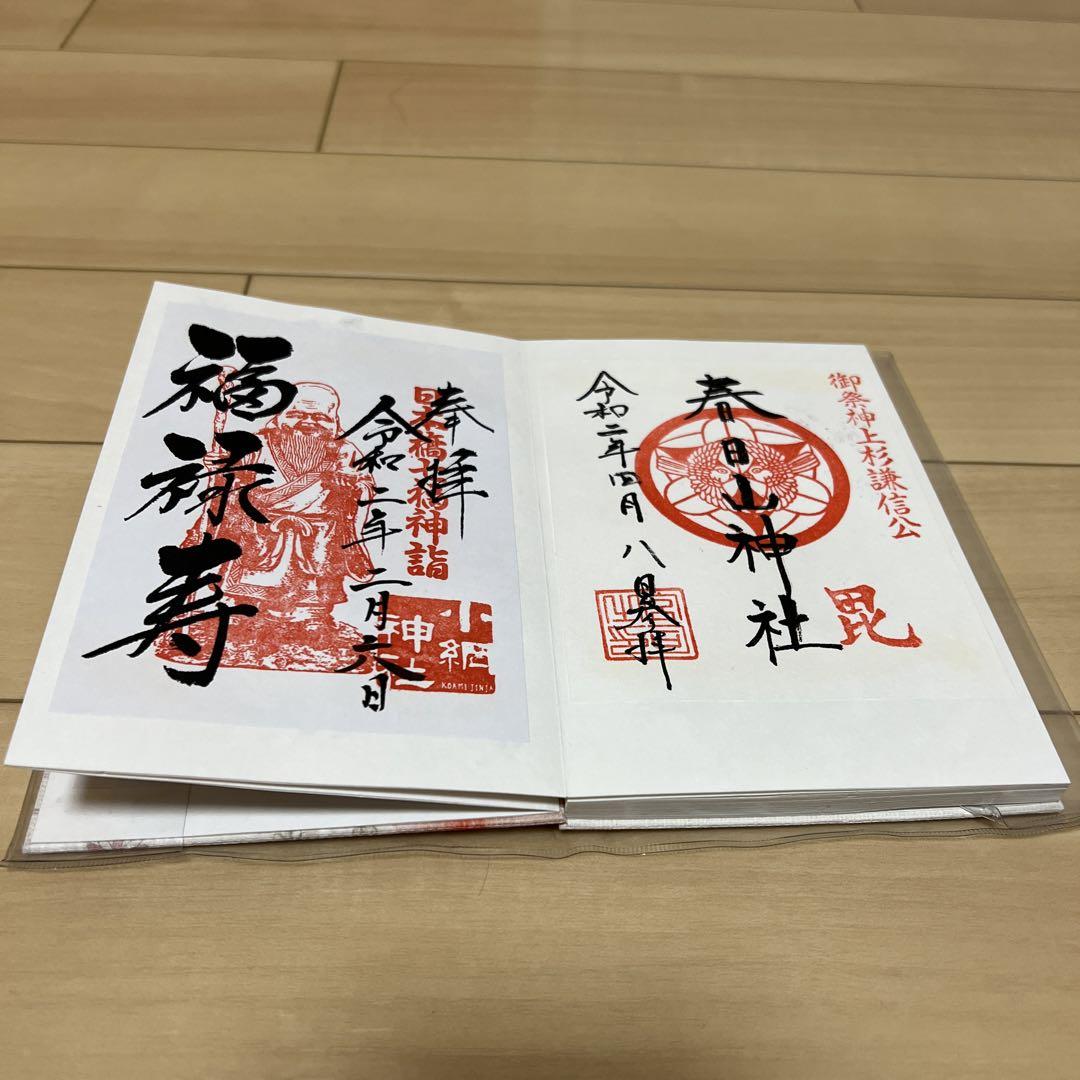 御祭神上杉謙信公
毘
春日山神社
令和二年四月八日参拝
奉拝
日本橋七福神詣
令和二年二月六日
福禄寿
小網
神社
KOAMI JINJA